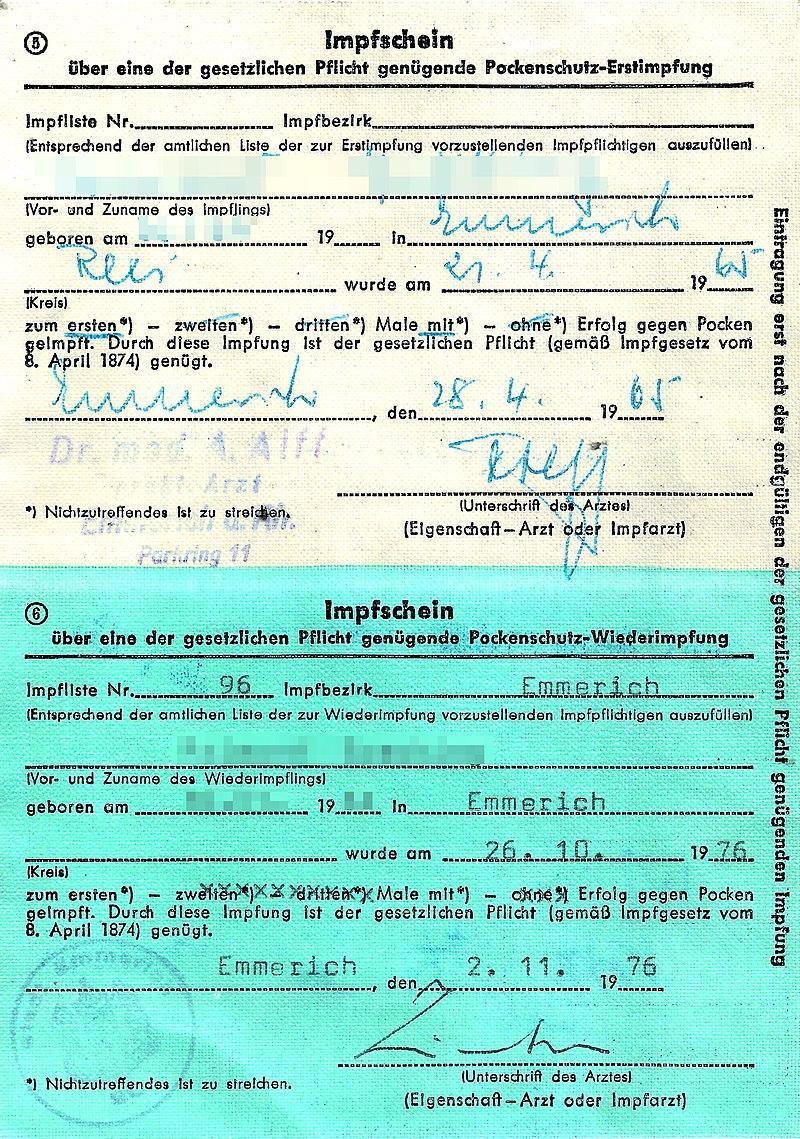 5 Impfschein
über eine der gesetzlichen Pflicht genügende Pockenschutz-Erstimpfung
Impfliste Nr. Impfbezirk
(Entsprechend der amtlichen Liste der zur Erstimpfung vorzustellenden Impfpflichtigen auszufüllen)
(Vor- und Zuname des Impflings)
geboren am 19 in Emmerich
Rees wurde am 21. 4. 1965
(Kreis)
zum ersten*) – zweiten*) – dritten*) Male mit*) – ohne*) Erfolg gegen Pocken
geimpft. Durch diese Impfung ist der gesetzlichen Pflicht (gemäß Impfgesetz vom
8. April 1874) genügt.
Emmerich, den 28. 4. 1965
Dr. med. A. Alff
prakt. Arzt
(Unterschrift des Arztes)
*) Nichtzutreffendes ist zu streichen.
Emmerich a. Rh.
(Eigenschaft – Arzt oder Impfarzt)
Parkring 11
6 Impfschein
über eine der gesetzlichen Pflicht genügende Pockenschutz-Wiederimpfung
Impfliste Nr. 96 Impfbezirk Emmerich
(Entsprechend der amtlichen Liste der zur Wiederimpfung vorzustellenden Impfpflichtigen auszufüllen)
(Vor- und Zuname des Wiederimpflings)
geboren am 19 in Emmerich
wurde am 26. 10. 1976
(Kreis)
zum ersten*) – zweiten*) – dritten*) Male mit*) – ohne*) Erfolg gegen Pocken
geimpft. Durch diese Impfung ist der gesetzlichen Pflicht (gemäß Impfgesetz vom
8. April 1874) genügt.
Emmerich, den 2. 11. 1976
Stadt Emmerich
(Unterschrift des Arztes)
*) Nichtzutreffendes ist zu streichen.
(Eigenschaft – Arzt oder Impfarzt)
Eintragung erst nach der endgültigen der gesetzlichen Pflicht genügenden Impfung